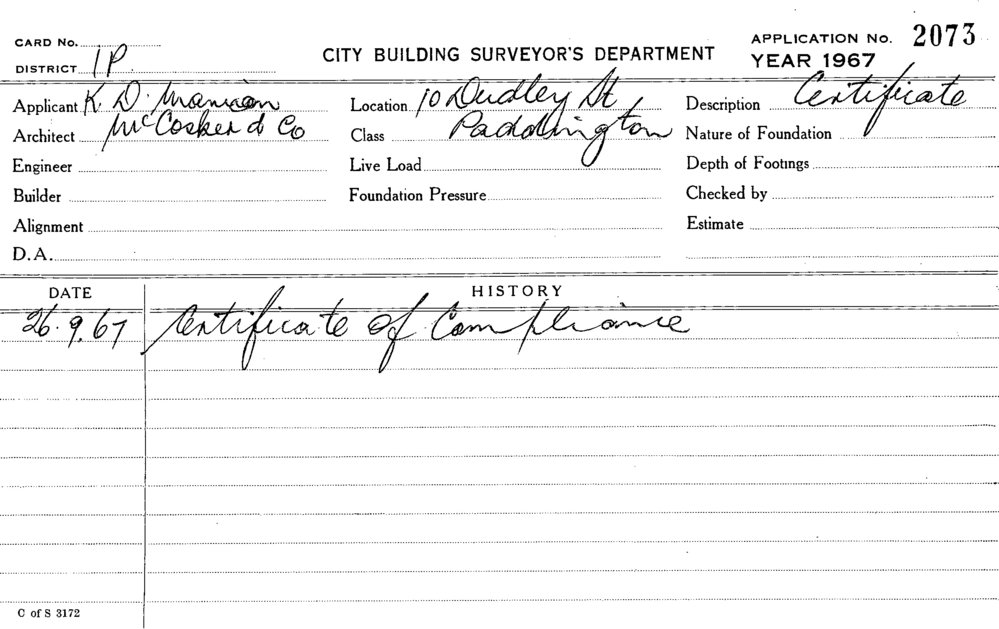 CARD No.
DISTRICT 1P
CITY BUILDING SURVEYOR'S DEPARTMENT
APPLICATION No. 2073
YEAR 1967
Applicant K. D.
Location 10 Dudley St,
Description Certificate
Architect McCosker & Co
Class Paddington
Nature of Foundation
Engineer
Live Load
Depth of Footings
Builder
Foundation Pressure
Checked by
Alignment
Estimate
D.A.
DATE
HISTORY
26.9.67 Certificate of Compliance
C of S 3172